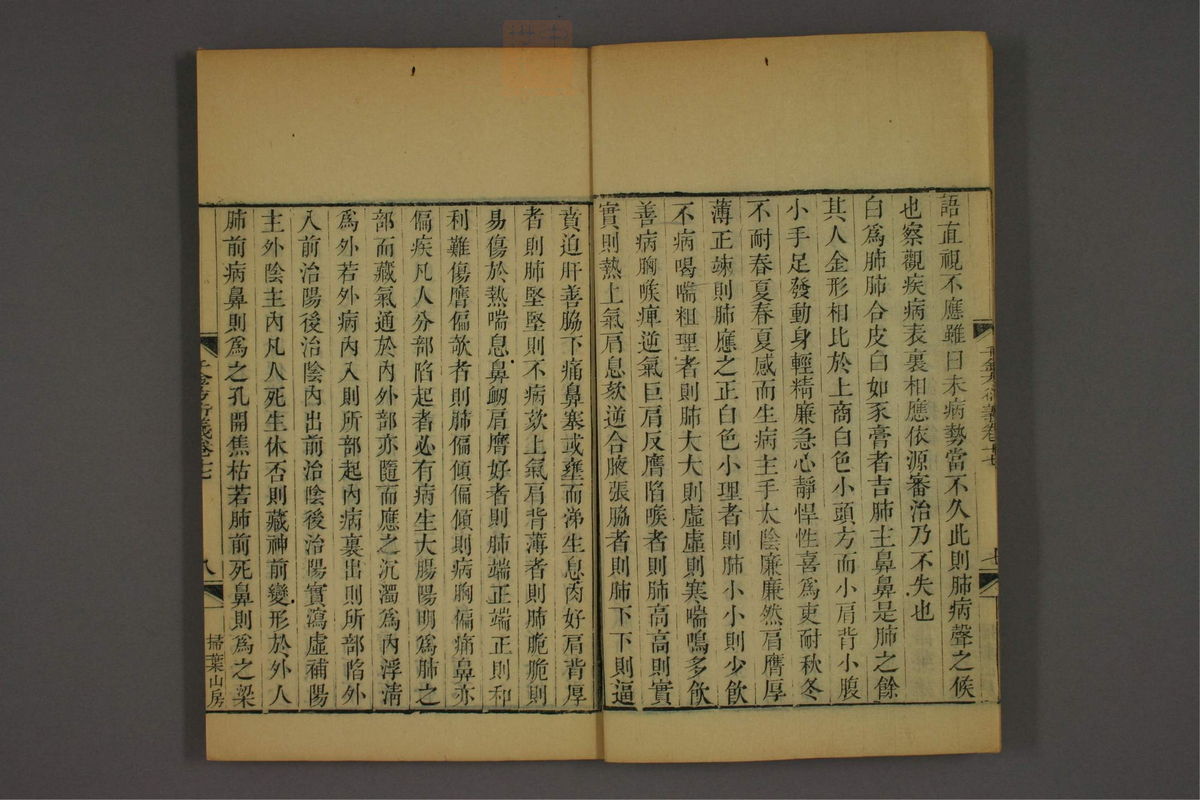 語直視不應雖曰未病勢當不久此則肺病聲之候
也察觀疾病表裏相應依源審治乃不失也
白爲肺肺合皮白如豕膏者吉肺主鼻鼻是肺之餘
其人金形相比於上商白色小頭方而小肩背小腹
小手足發動身輕精廉急心靜悍性喜爲吏耐秋冬
不耐春夏春夏感而生病主手太陰廉廉然肩膺厚
薄正竦則肺應之正白色小理者則肺小小則少飲
不病喝喘粗理者則肺大大則虛虛則寒喘鳴多飲
善病胸喉痺逆氣巨肩反膺陷喉者則肺高高則實
實則熱上氣肩息欬逆合腋張脇者則肺下下則逼
賁迫肝善脇下痛鼻塞或壅而涕生息肉好肩背厚
者則肺堅堅則不病欬上氣肩背薄者則肺脆脆則
易傷於熱喘息鼻衂肩膺好者則肺端正端正則和
利難傷膺偏欹者則肺偏傾偏傾則病胸偏痛鼻亦
偏疾凡人分部陷起者必有病生大腸陽明爲肺之
部而藏氣通於內外部亦隨而應之沉濁爲內浮淸
爲外若外病內入則所部起內病裏出則所部陷外
入前治陽後治陰內出前治陰後治陽實瀉虛補陽
主外陰主內凡人死生休否則藏神前變形於外人
肺前病鼻則爲之孔開焦枯若肺前死鼻則爲之梁
千金方衍義卷十七
八
掃葉山房